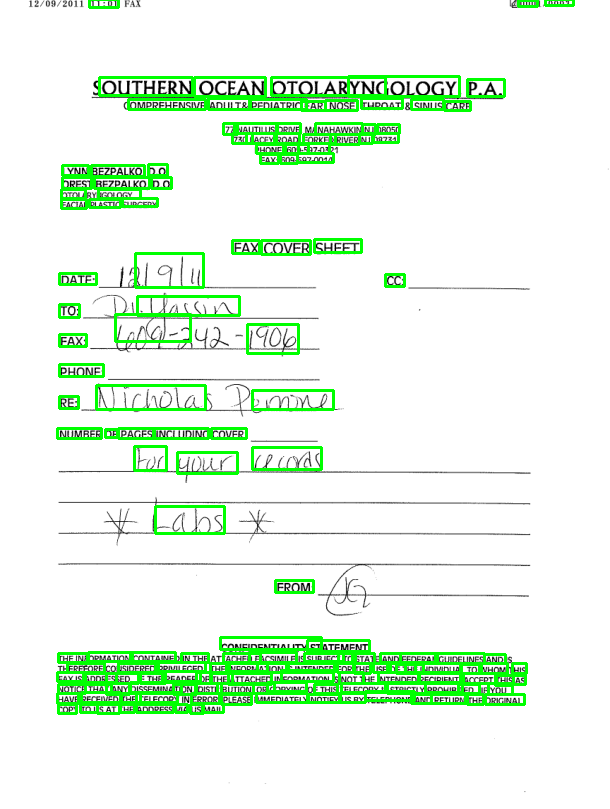 12/09/2011 11:01 FAX
SOUTHERN OCEAN OTOLARYNGOLOGY P.A.
COMPREHENSIVE ADULT & PEDIATRIC EAR, NOSE, THROAT & SINUS CARE
77 NAUTILUS DRIVE, MANAHAWKIN NJ 08050
730 LACEY ROAD, FORKED RIVER NJ 08731
PHONE: 609-597-0321
FAX: 609-597-0014
LYNN BEZPALKO, D.O.
FOREST BEZPALKO, D.O.
OTOLARYNGOLOGY
FACIAL PLASTIC SURGERY
FAX COVER SHEET
DATE: 12/9/11
CC:
TO: Dr. Yassin
FAX: 609-242-1906
PHONE
RE: Nicholas
NUMBER OF PAGES INCLUDING COVER
for your records
* Labs *
FROM
CONFIDENTIALITY STATEMENT
THE INFORMATION CONTAINED IN THE ATTACHED FACSIMILE IS SUBJECT TO STATE AND FEDERAL GUIDELINES AND IS
THEREFORE CONSIDERED PRIVILEGED. THE INFORMATION IS INTENDED FOR THE USE OF THE INDIVIDUAL TO WHOM THIS
FAX IS ADDRESSED. IF THE READER OF THE ATTACHED INFORMATION IS NOT THE INTENDED RECIPIENT, ACCEPT THIS AS
NOTICE THAT ANY DISSEMINATION, DISTRIBUTION OR COPYING OF THIS TELECOPY IS STRICTLY PROHIBITED. IF YOU
HAVE RECEIVED THE TELECOPY IN ERROR, PLEASE IMMEDIATELY NOTIFY US BY TELEPHONE AND RETURN THE ORIGINAL
COPY TO US AT THE ADDRESS VIA US MAIL